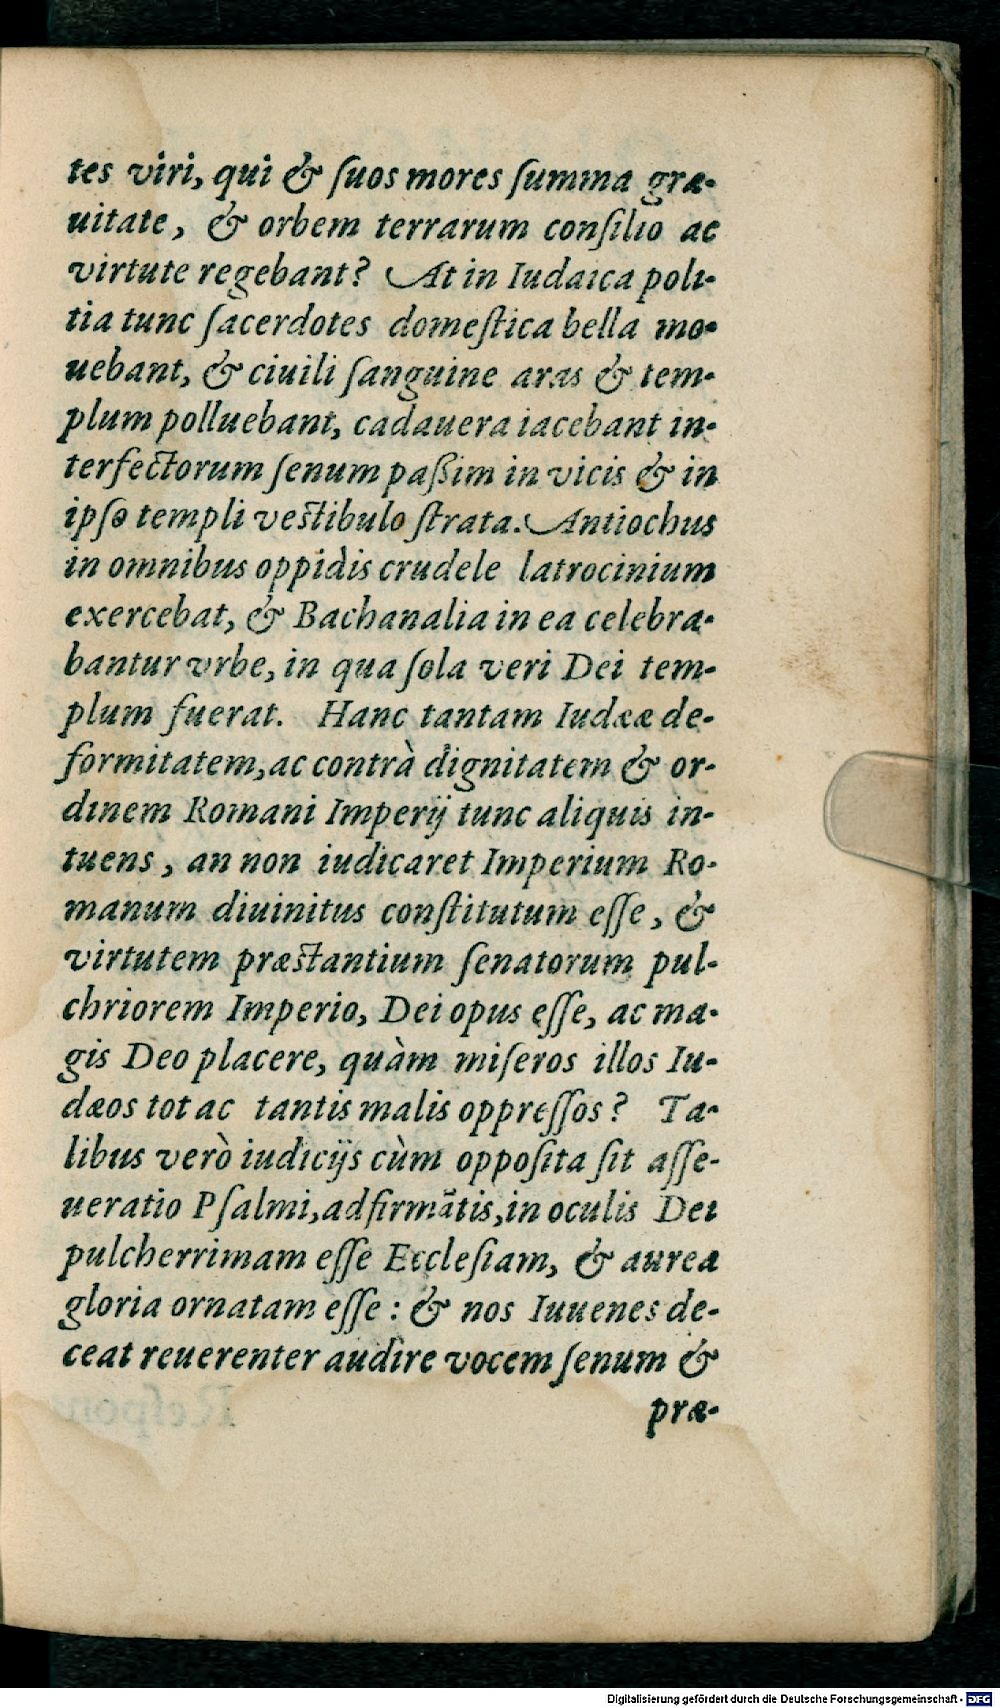 tes viri, qui & ſuos mores ſumma gra-
uitate, & orbem terrarum conſilio ac
virtute regebant? At in Iudaica poli-
tia tunc ſacerdotes domeſtica bella mo-
uebant, & ciuili ſanguine aras & tem-
plum polluebant, cadauera iacebant in-
terfectorum ſenum paßim in vicis & in
ipſo templi veſtibulo ſtrata. Antiochus
in omnibus oppidis crudele latrocinium
exercebat, & Bachanalia in ea celebra-
bantur vrbe, in qua ſola veri Dei tem-
plum fuerat. Hanc tantam Iudææ de-
formitatem, ac contrà dignitatem & or-
dinem Romani Imperij tunc aliquis in-
tuens, an non iudicaret Imperium Ro-
manum diuinitus conſtitutum eſſe, &
virtutem præſtantium ſenatorum pul-
chriorem Imperio, Dei opus eſſe, ac ma-
gis Deo placere, quàm miſeros illos Iu-
dæos tot ac tantis malis oppreſſos? Ta-
libus verò iudicijs cùm oppoſita ſit aſſe-
ueratio Pſalmi, adfirmãtis, in oculis Dei
pulcherrimam eſſe Eccleſiam, & aurea
gloria ornatam eſſe: & nos Iuuenes de-
ceat reuerenter audire vocem ſenum &
præ-
Digitalisierung gefördert durch die Deutsche Forschungsgemeinschaft - DFG